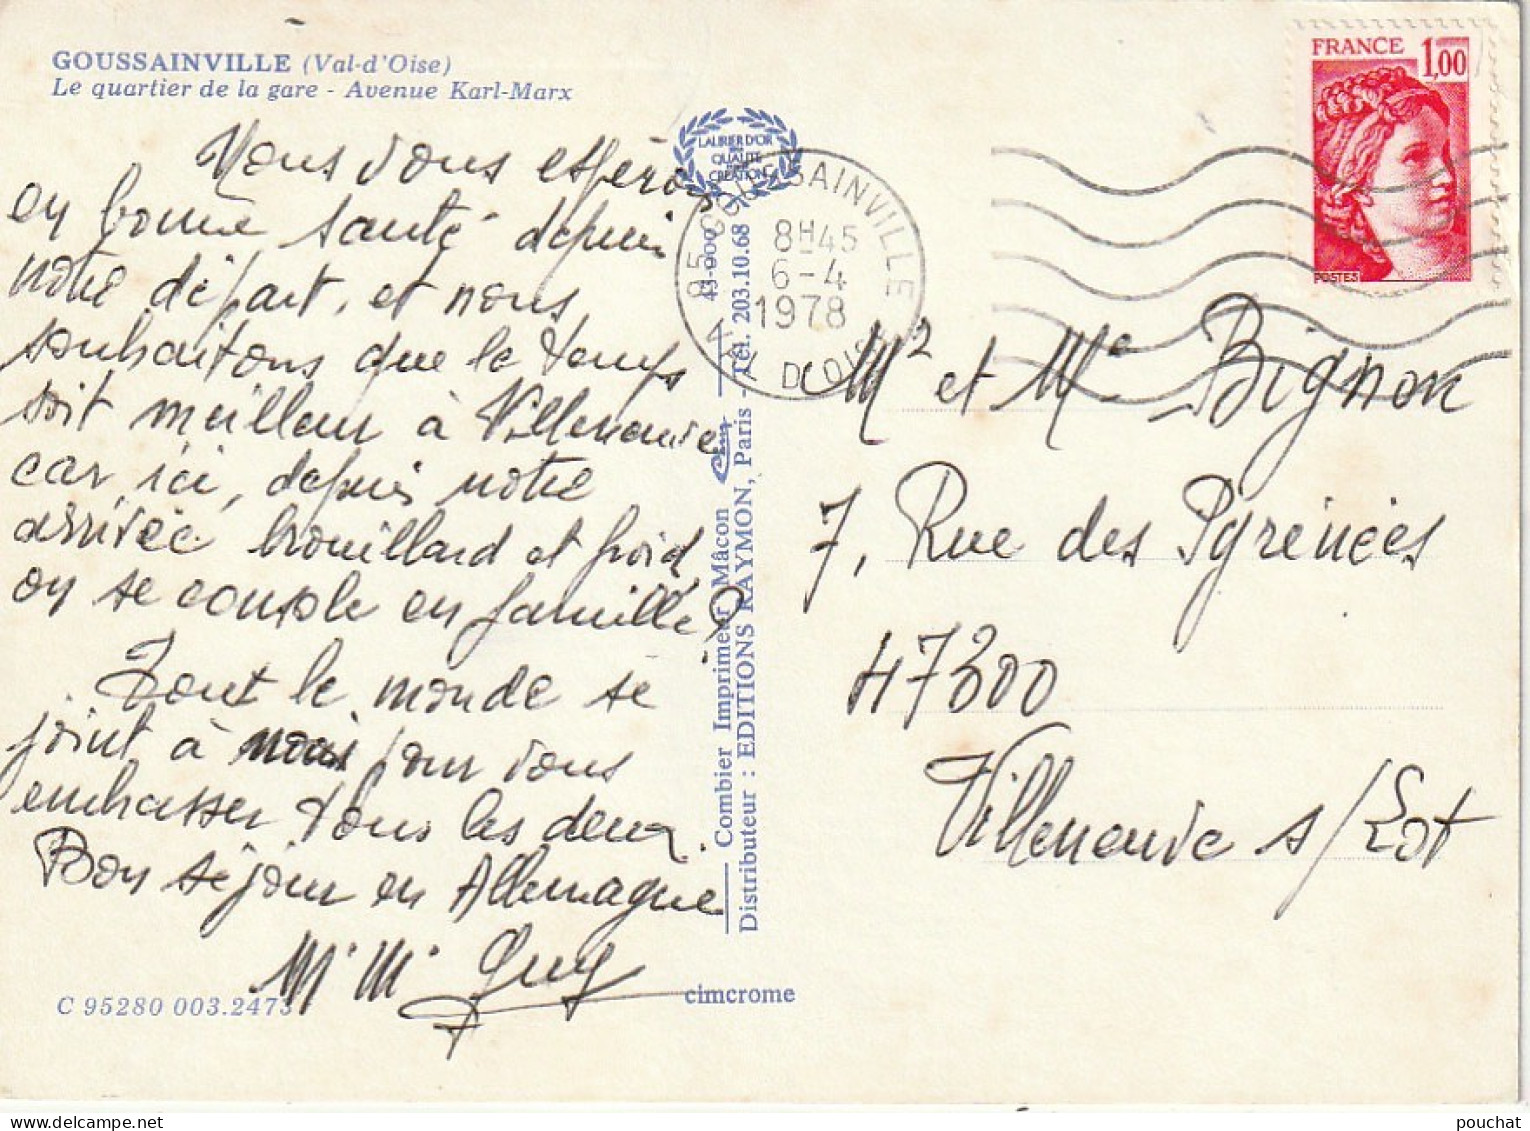 GOUSSAINVILLE (Val-d'Oise)
Le quartier de la gare - Avenue Karl-Marx
Nous vous espérons
en bonne santé depuis
notre départ, et nous
souhaitons que le temps
soit meilleur à Villeneuve
car ici, depuis notre
arrivée brouillard et froid,
on se couple en famille ?
Tout le monde se
joint à nous pour vous
embrasser tous les deux.
Bon séjour en Allemagne
Mr Me Guy
C 95280 003.2473
cimcrome
Combier Imprimeur Mâcon Cim
Distributeur : EDITIONS RAYMON, Paris - Tél. 203.10.68
LAURIER D'OR
QUALITÉ
CRÉATION
95 GOUSSAINVILLE
8H45
6-4
1978
VAL D'OISE
FRANCE 1,00
POSTES
Mr et Me Bignon
7, Rue des Pyrénées
47300
Villeneuve s/Lot
pouchat